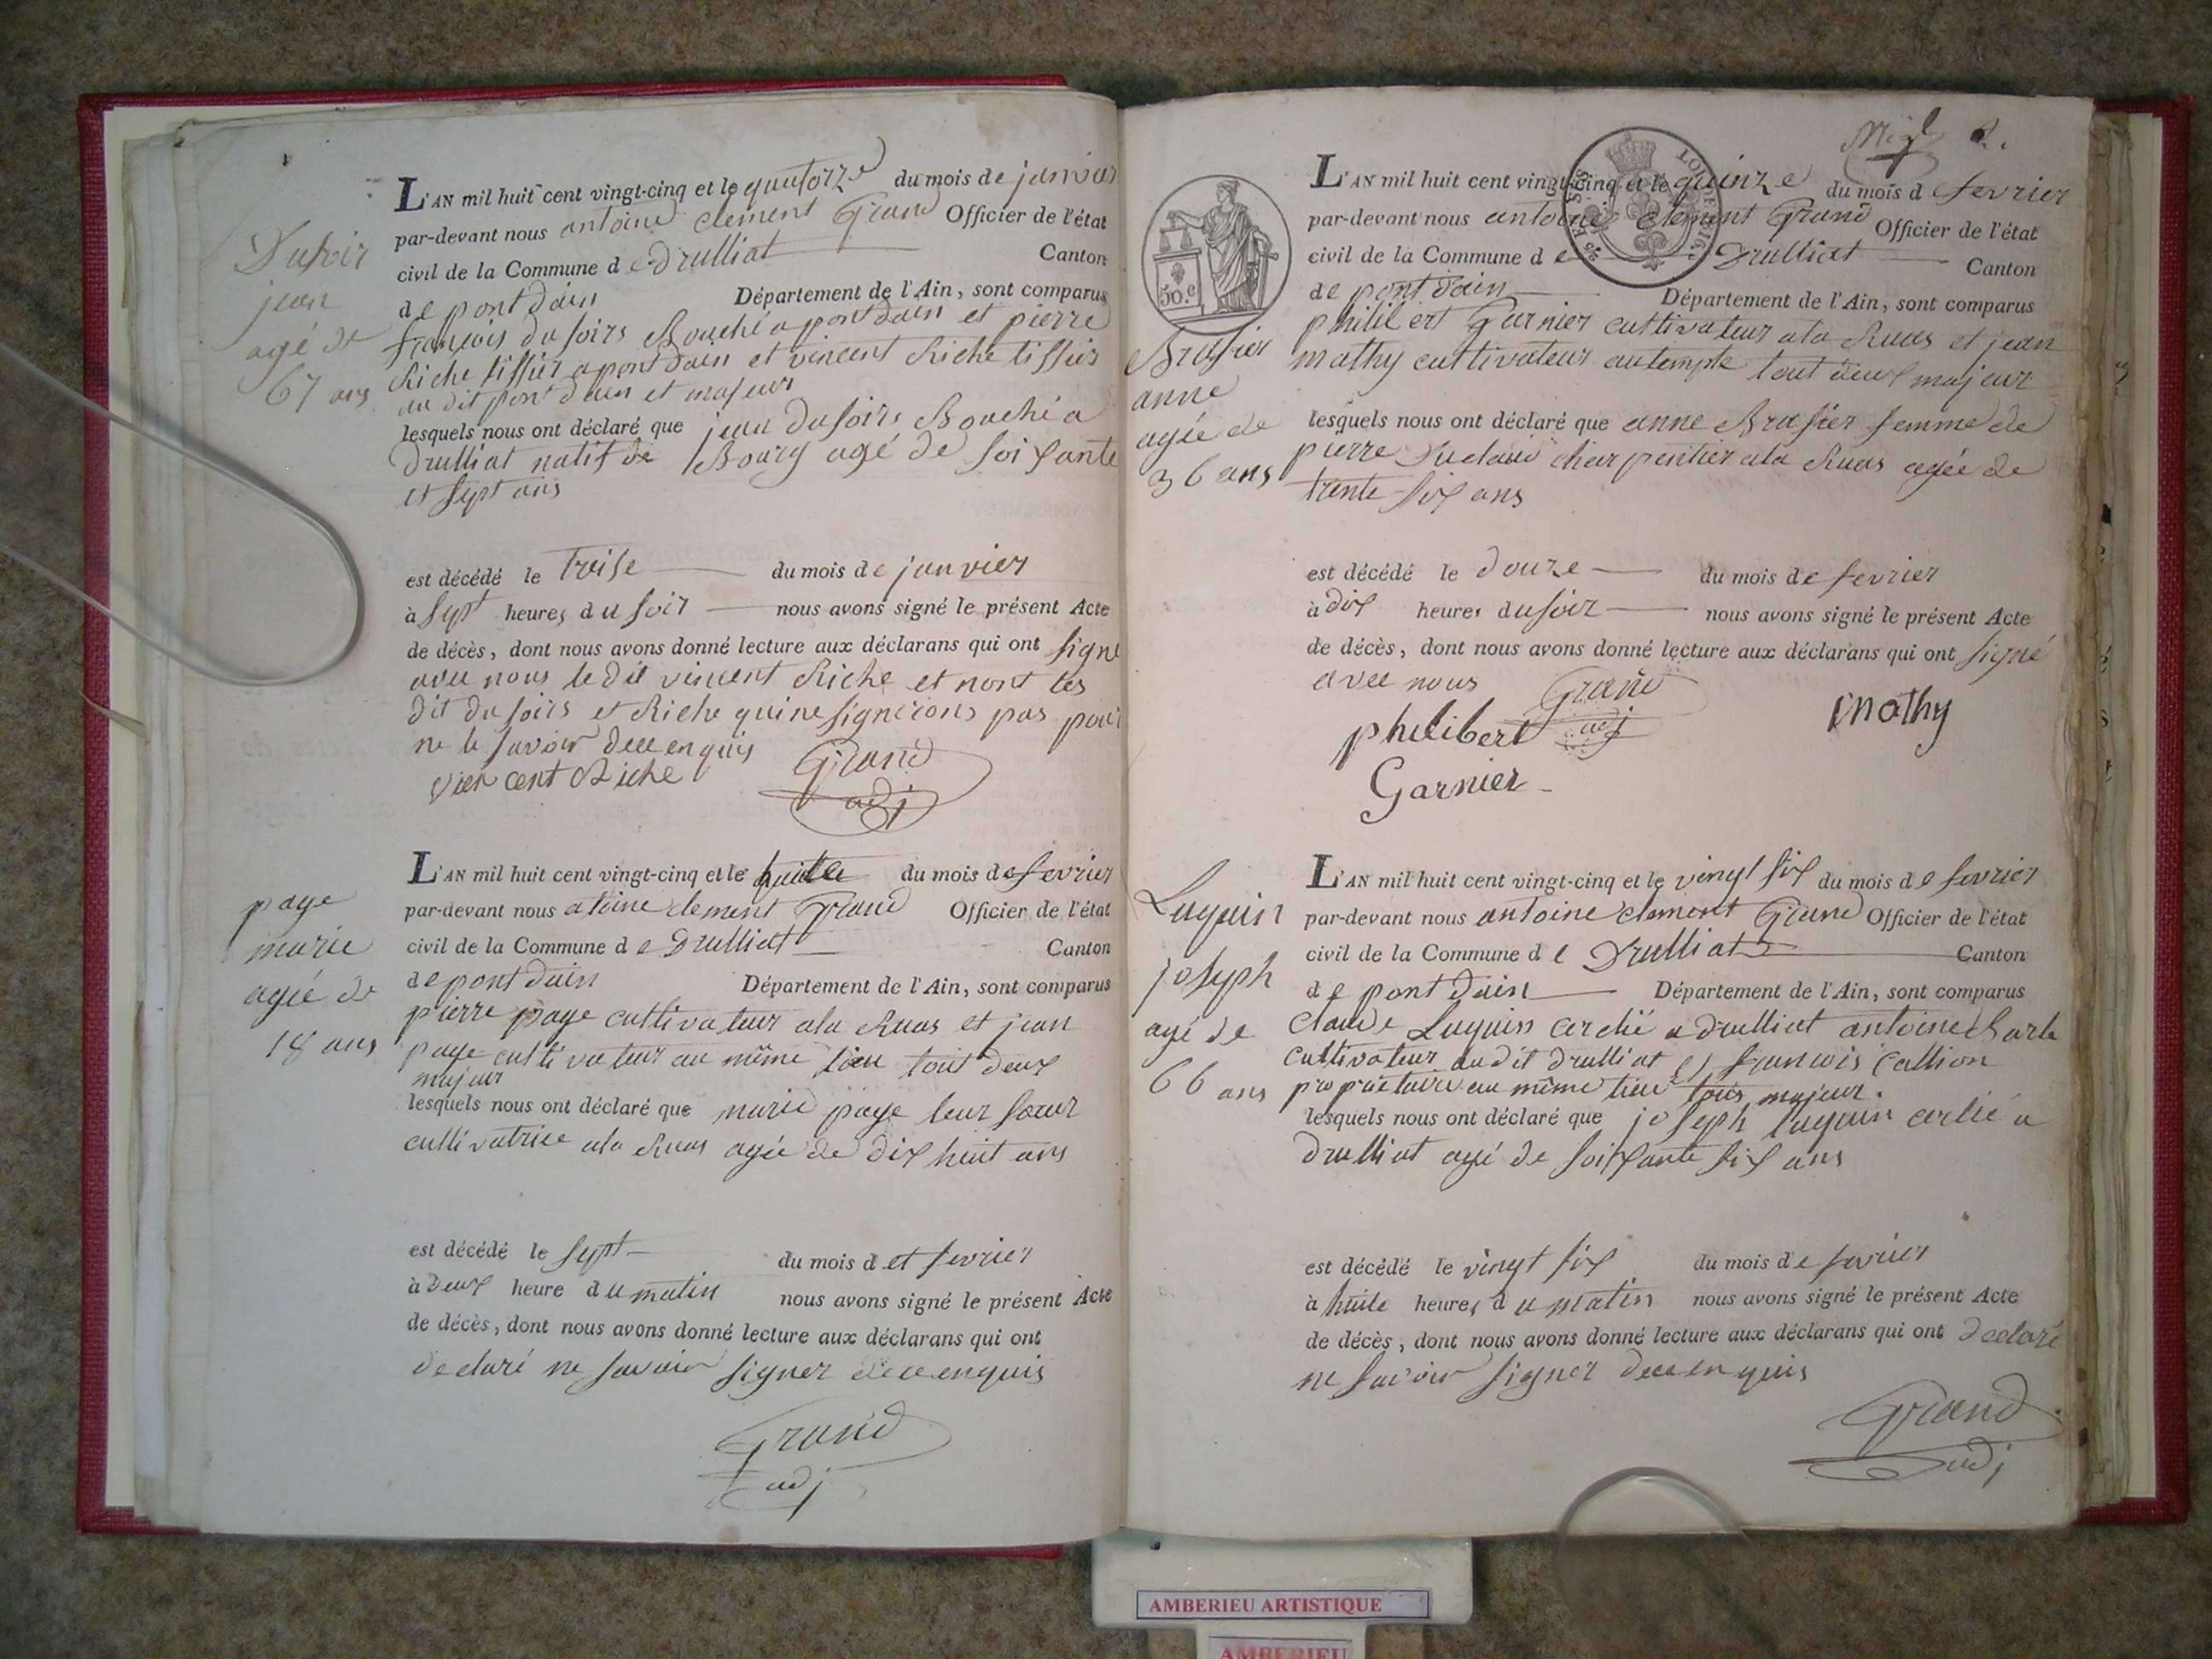 Dusoir
jean
agé de
67 ans
L'AN mil huit cent vingt-cinq et le quatorze du mois de janvier
par-devant nous antoine clement Grand Officier de l'état
civil de la Commune de Drulliat Canton
de pont dain Département de l'Ain, sont comparus
françois du soirs Bouché a pont dain et pierre
Riche tissier a pont dain et vincent Riche tissier
au dit pont dain et majeur
lesquels nous ont déclaré que jean dusoirs Bouché a
Drulliat natif de Bourg agé de soixante
et sept ans
est décédé le treise du mois de janvier
à sept heures du soir nous avons signé le présent Acte
de décès, dont nous avons donné lecture aux déclarans qui ont signé
avec nous le dit vincent Riche et nont les
dit du soirs et Riche qui ne pas pour
ne le savoir de ce enquis
vien cent Riche Grand
adj
page
marie
agée de
18 ans
L'AN mil huit cent vingt-cinq et le huite du mois de fevrier
par-devant nous atoine clement Grand Officier de l'état
civil de la Commune de Drulliat Canton
de pont dain Département de l'Ain, sont comparus
pierre page cultivateur ala Ruas et jean
page cultivateur au même lieu tout deux
majeur
lesquels nous ont déclaré que marie page leur sœur
cultivatrice ala Ruas agée de dix huit ans
est décédé le sept du mois d et fevrier
à deux heure du matin nous avons signé le présent Acte
de décès, dont nous avons donné lecture aux déclarans qui ont
declaré ne savoir signer de ce enquis
Grand
adj
2.
50.c
Brasier
anne
agée de
36 ans
L'AN mil huit cent vingt-cinq et le quinze du mois de fevrier
par-devant nous antoine clement Grand Officier de l'état
civil de la Commune de Drulliat Canton
de pont dain Département de l'Ain, sont comparus
philibert Garnier cultivateur ala Ruas et jean
mathy cultivateur autemple tout deux majeur
lesquels nous ont déclaré que anne Brasier femme de
pierre charpentier ala Ruas agée de
trente six ans
est décédé le douze du mois de fevrier
à dix heures du soir nous avons signé le présent Acte
de décès, dont nous avons donné lecture aux déclarans qui ont signé
avec nous Grand
philibert adj mathy
Garnier
Luquin
joseph
agé de
66 ans
L'AN mil huit cent vingt-cinq et le vingt six du mois de fevrier
par-devant nous antoine clement Grand Officier de l'état
civil de la Commune de Drulliat Canton
de pont dain Département de l'Ain, sont comparus
claude Luquin cerclié a drulliat antoine
cultivateur dudit drulliat et francois Callion
propriétaire au même lieu tous majeur.
lesquels nous ont déclaré que joseph luquin cerlié a
drulliat agé de soixante six ans
est décédé le vingt six du mois de fevrier
à huite heures du matin nous avons signé le présent Acte
de décès, dont nous avons donné lecture aux déclarans qui ont declaré
ne savoir signer de ce enquis
Grand
adj
AMBERIEU ARTISTIQUE
AMBERIEU